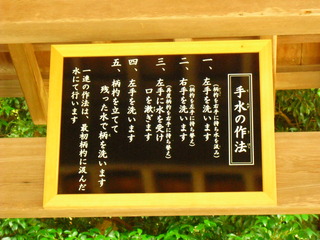 手水の作法
一、(柄杓を右手に持ち水を汲み)
左手を洗います
二、(柄杓を左手に持ち替え)
右手を洗います
三、(再度柄杓を右手に持ち替え)
左手に水を受け
口を漱ぎます
四、左手を洗います
五、柄杓を立てて
残った水で柄を洗います
一連の作法は、最初柄杓に汲んだ
水にて行います